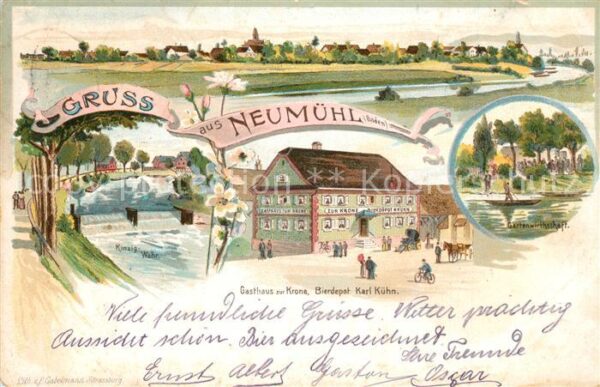 GRUSS
aus NEUMÜHL (Baden)
GASTHAUS ZUR KRONE
Z. KRONE
BIERDEPOT KÜHN
Kinzig-
Wehr.
Gartenwirthschaft.
Gasthaus zur Krone, Bierdepot Karl Kühn.
Viele freundliche Grüsse. Wetter prächtig
Aussicht schön. Bier ausgezeichnet.
Ihre Freunde
Ernst Albert Gaston Oscar